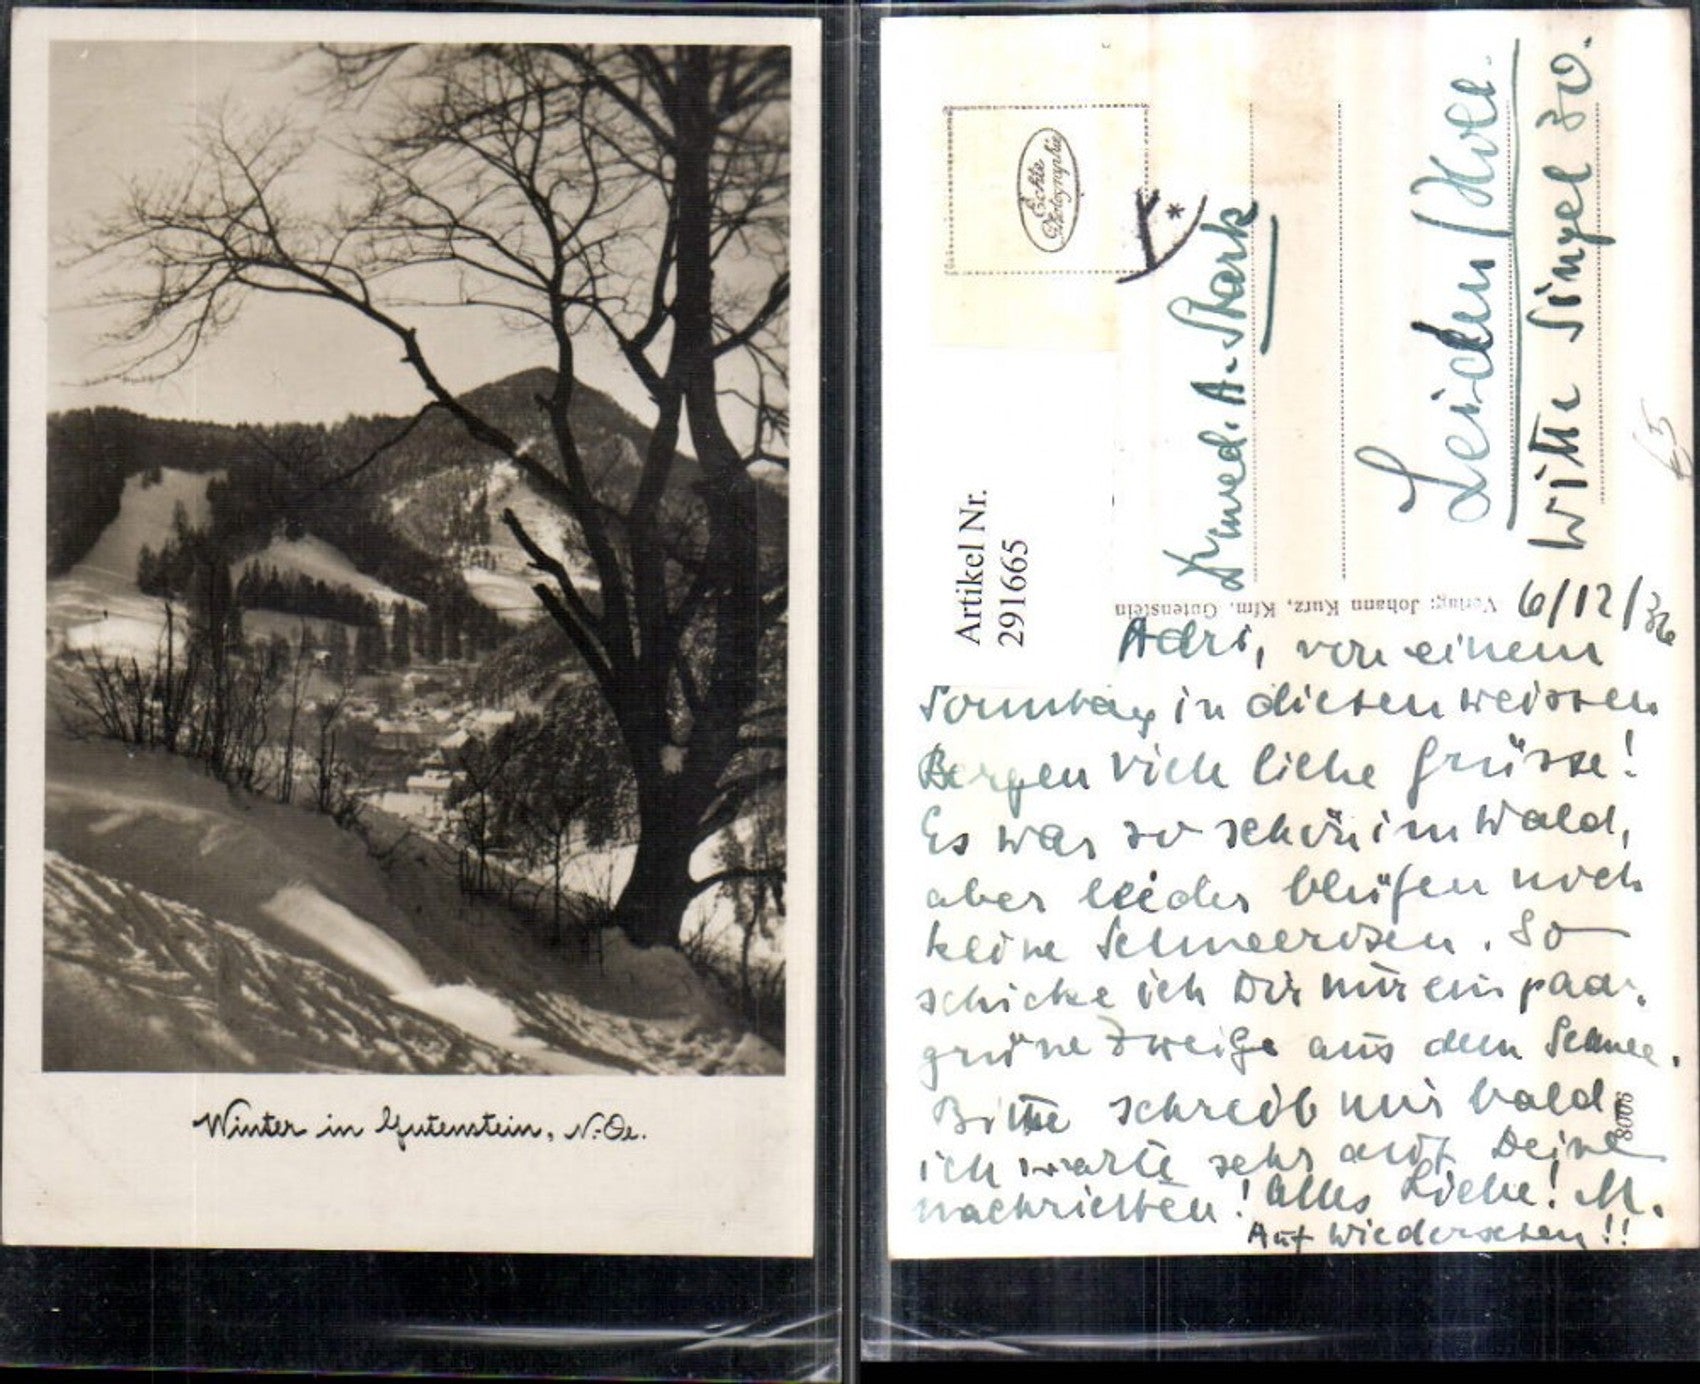 Winter in Gutenstein, N.-Oe.
Echte
Photographie
Artikel Nr.
291665
Dr. med. A. Stark
Leiden / Holl.
Witte Singel 30.
Verlag: Johann Kurz, Kfm. Gutenstein
6/12/36
Adri, von einem
Sonntag in diesen weissen
Bergen viele liebe Grüsse!
Es war so schön im Wald,
aber leider blühen noch
keine Schneerosen. So
schicke ich Dir nur ein paar
grüne Zweige aus dem Schnee.
Bitte schreib mir bald,
ich warte sehr auf Deine
nachrichten! Alles Liebe! M.
Auf Wiedersehen!!
8006